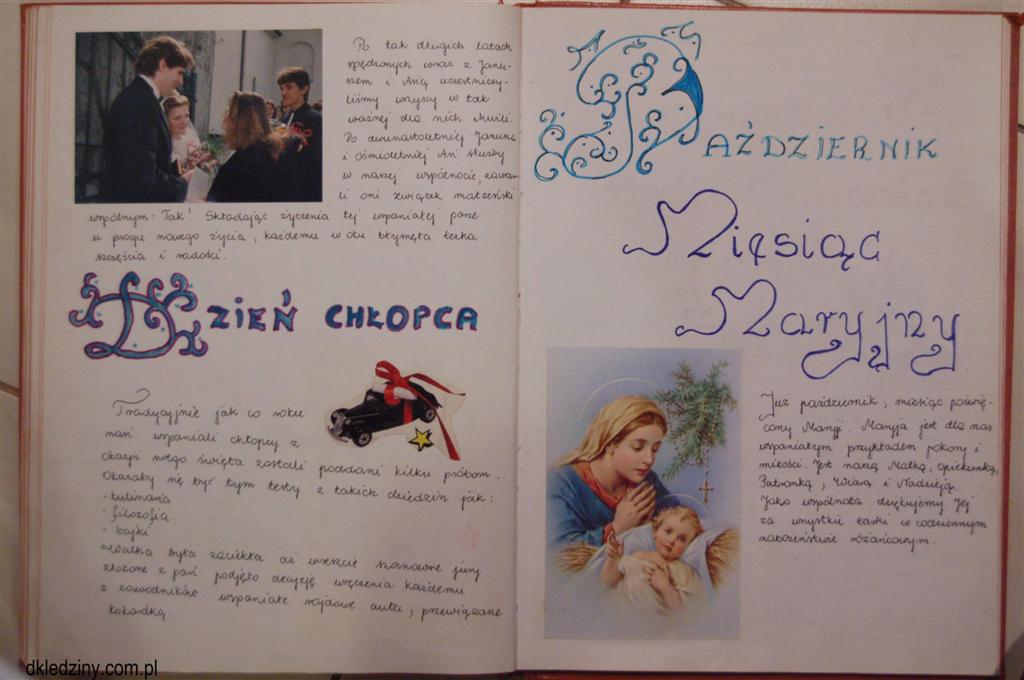 Po tak długich latach
spędzonych wraz z Janu-
szem i Anią uczestniczy-
liśmy wszyscy w tak
ważnej dla nich chwili.
Po dwunastoletniej Janusza
i ośmioletniej Ani służby
w naszej wspólnocie, zawar-
li oni związek małżeński
wspólnym: Tak! Składając życzenia tej wspaniałej parze
u progu nowego życia, każdemu w oku błysnęła łezka
szczęścia i radości.
DZIEŃ CHŁOPCA
Tradycyjnie jak co roku
nasi wspaniali chłopcy z
okazji swego święta zostali poddani kilku próbom.
Okazały się być tym testy z takich dziedzin jak:
- kulinaria
- filozofia
- bajki
Walka była zaciekła aż wreszcie szanowne jury
złożone z pań podjęło decyzję wręczenia każdemu
z zawodników wspaniałe rajdowe auto, przewiązane
kokardką.
PAŹDZIERNIK
Miesiąc
Maryjny
Już październik, miesiąc poświę-
cony Maryji. Maryja jest dla nas
wspaniałym przykładem pokory i
miłości. Jest naszą Matką, opiekunką,
Patronką, Wiarą i Nadzieją.
Jako wspólnota dziękujemy Jej
za wszystkie łaski w codziennym
nabożeństwie różańcowym.
dkledziny.com.pl